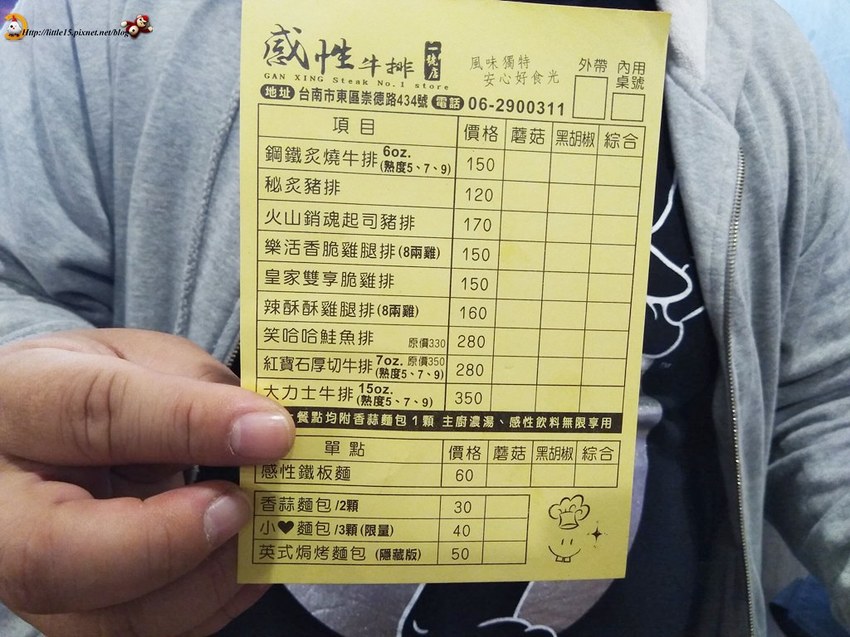 Http://little15.pixnet.net/blog
感性牛排 一號店
GAN XING Steak No.1 store
風味獨特
安心好食光
外帶
內用桌號
地址 台南市東區崇德路434號 電話 06-2900311
項目 價格 蘑菇 黑胡椒 綜合
鋼鐵炙燒牛排 6oz. (熟度5、7、9) 150
秘炙豬排 120
火山銷魂起司豬排 170
樂活香脆雞腿排(8兩雞) 150
皇家雙享脆雞排 150
辣酥酥雞腿排(8兩雞) 160
笑哈哈鮭魚排 原價330 280
紅寶石厚切牛排 7oz. 原價350 (熟度5、7、9) 280
大力士牛排 15oz. (熟度5、7、9) 350
餐點均附香蒜麵包1顆 主廚濃湯、感性飲料無限享用
單點 價格 蘑菇 黑胡椒 綜合
感性鐵板麵 60
香蒜麵包/2顆 30
小♥麵包/3顆(限量) 40
英式焗烤麵包 (隱藏版) 50